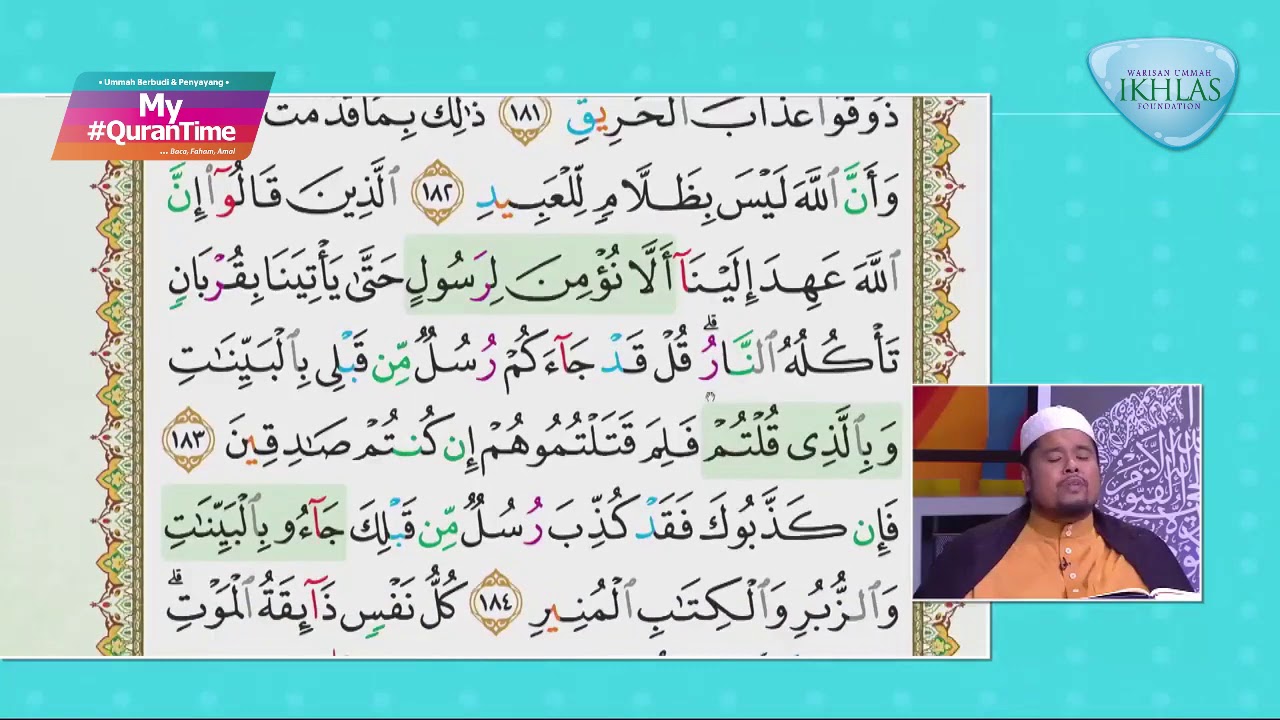 • Ummah Berbudi & Penyayang •
My
#QuranTime
... Baca, Faham, Amal
WARISAN UMMAH
IKHLAS
FOUNDATION
ذُوقُوا۟ عَذَابَ ٱلْحَرِيقِ ١٨١ ذَٰلِكَ بِمَا قَدَّمَتْ
وَأَنَّ ٱللَّهَ لَيْسَ بِظَلَّامٍ لِّلْعَبِيدِ ١٨٢ ٱلَّذِينَ قَالُوٓا۟ إِنَّ
ٱللَّهَ عَهِدَ إِلَيْنَآ أَلَّا نُؤْمِنَ لِرَسُولٍ حَتَّىٰ يَأْتِيَنَا بِقُرْبَانٍ
تَأْكُلُهُ ٱلنَّارُ ۗ قُلْ قَدْ جَآءَكُمْ رُسُلٌ مِّن قَبْلِى بِٱلْبَيِّنَٰتِ
وَبِٱلَّذِى قُلْتُمْ فَلِمَ قَتَلْتُمُوهُمْ إِن كُنتُمْ صَٰدِقِينَ ١٨٣
فَإِن كَذَّبُوكَ فَقَدْ كُذِّبَ رُسُلٌ مِّن قَبْلِكَ جَآءُو بِٱلْبَيِّنَٰتِ
وَٱلزُّبُرِ وَٱلْكِتَٰبِ ٱلْمُنِيرِ ١٨٤ كُلُّ نَفْسٍ ذَآئِقَةُ ٱلْمَوْتِ ۗ